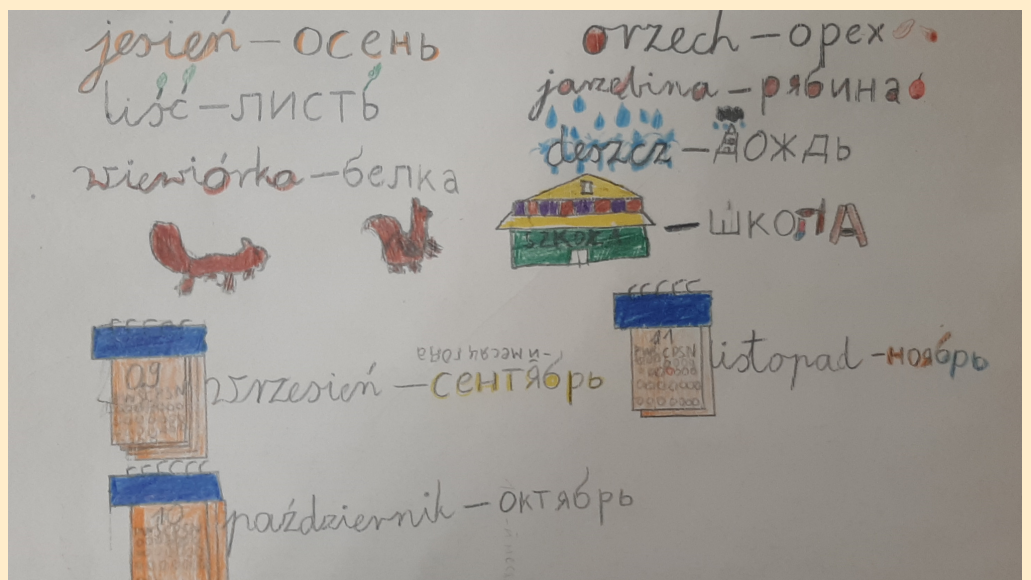 jesień – осень
liść – листь
wiewiórka – белка
orzech – орех
jarzębina – рябина
deszcz – дождь
SZKOŁA – школА
09
wrzesień – сентябрь
-й месяц года
11
PWŚCPSN
listopad – ноябрь
10
październik – октябрь